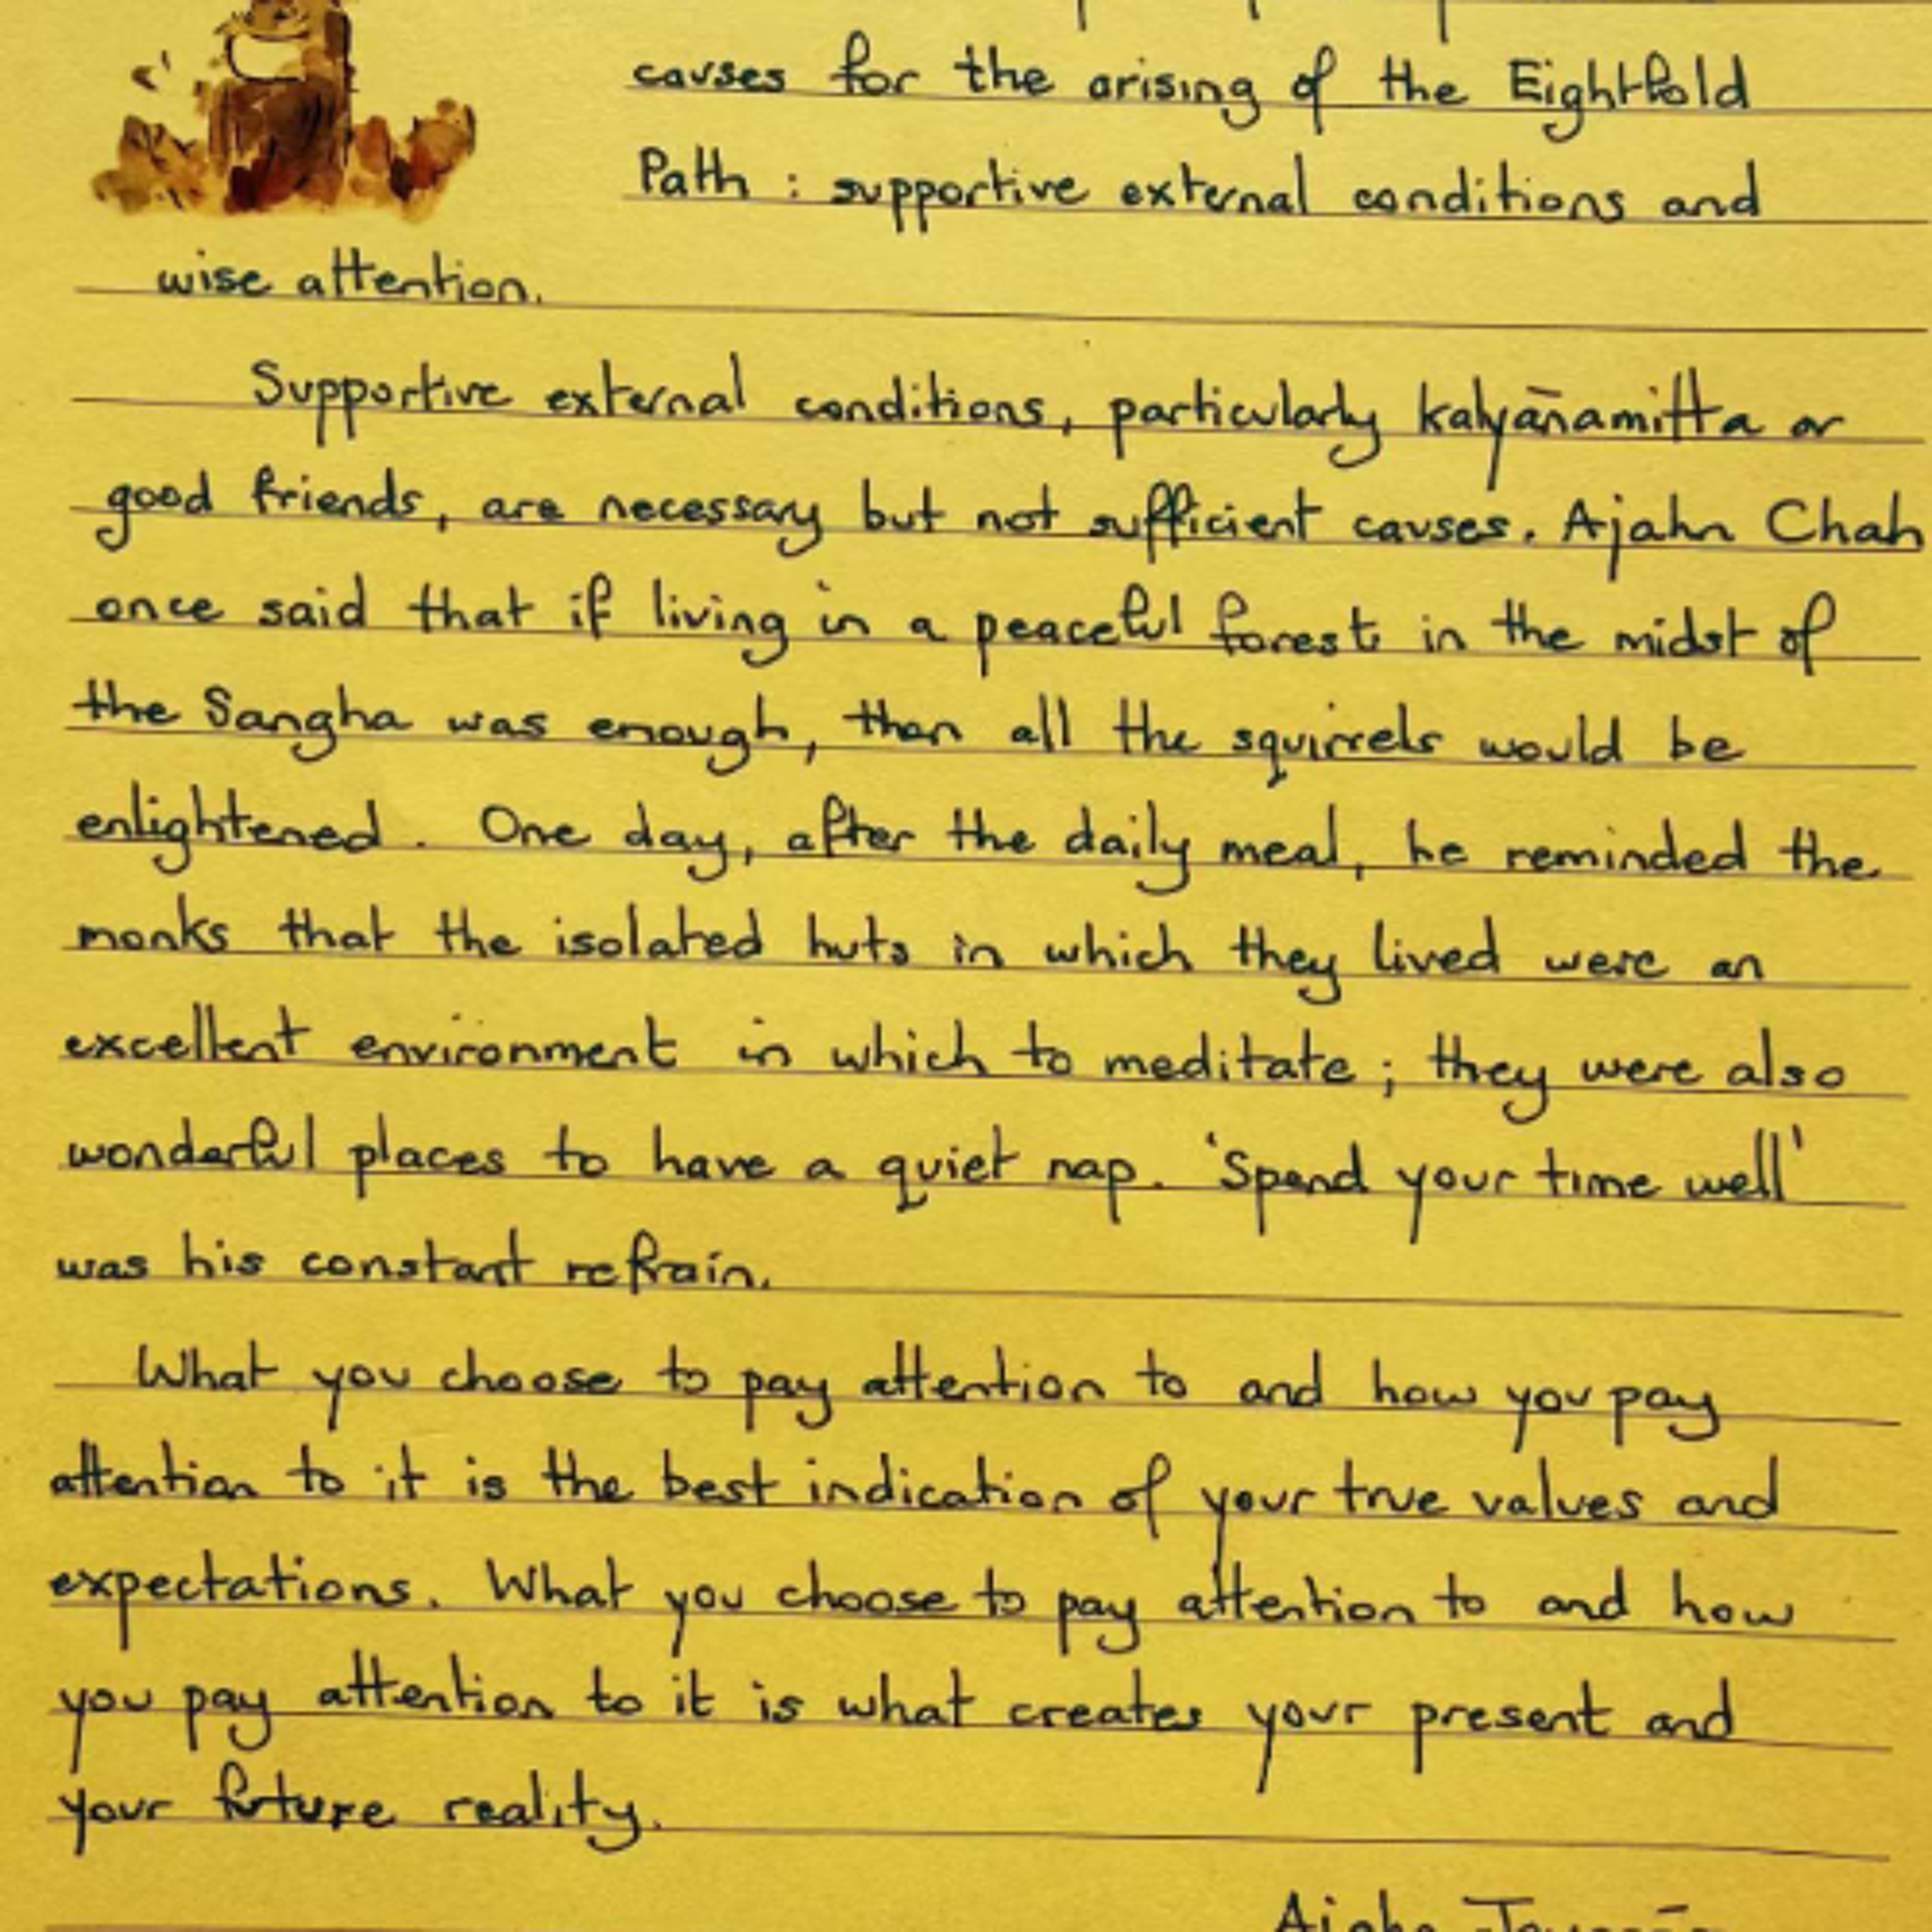 causes for the arising of the Eightfold
Path : supportive external conditions and
wise attention.
Supportive external conditions, particularly kalyāṇamitta or
good friends, are necessary but not sufficient causes. Ajahn Chah
once said that if living in a peaceful forest in the midst of
the Sangha was enough, then all the squirrels would be
enlightened. One day, after the daily meal, he reminded the
monks that the isolated huts in which they lived were an
excellent environment in which to meditate ; they were also
wonderful places to have a quiet nap. 'Spend your time well'
was his constant refrain.
What you choose to pay attention to and how you pay
attention to it is the best indication of your true values and
expectations. What you choose to pay attention to and how
you pay attention to it is what creates your present and
your future reality.